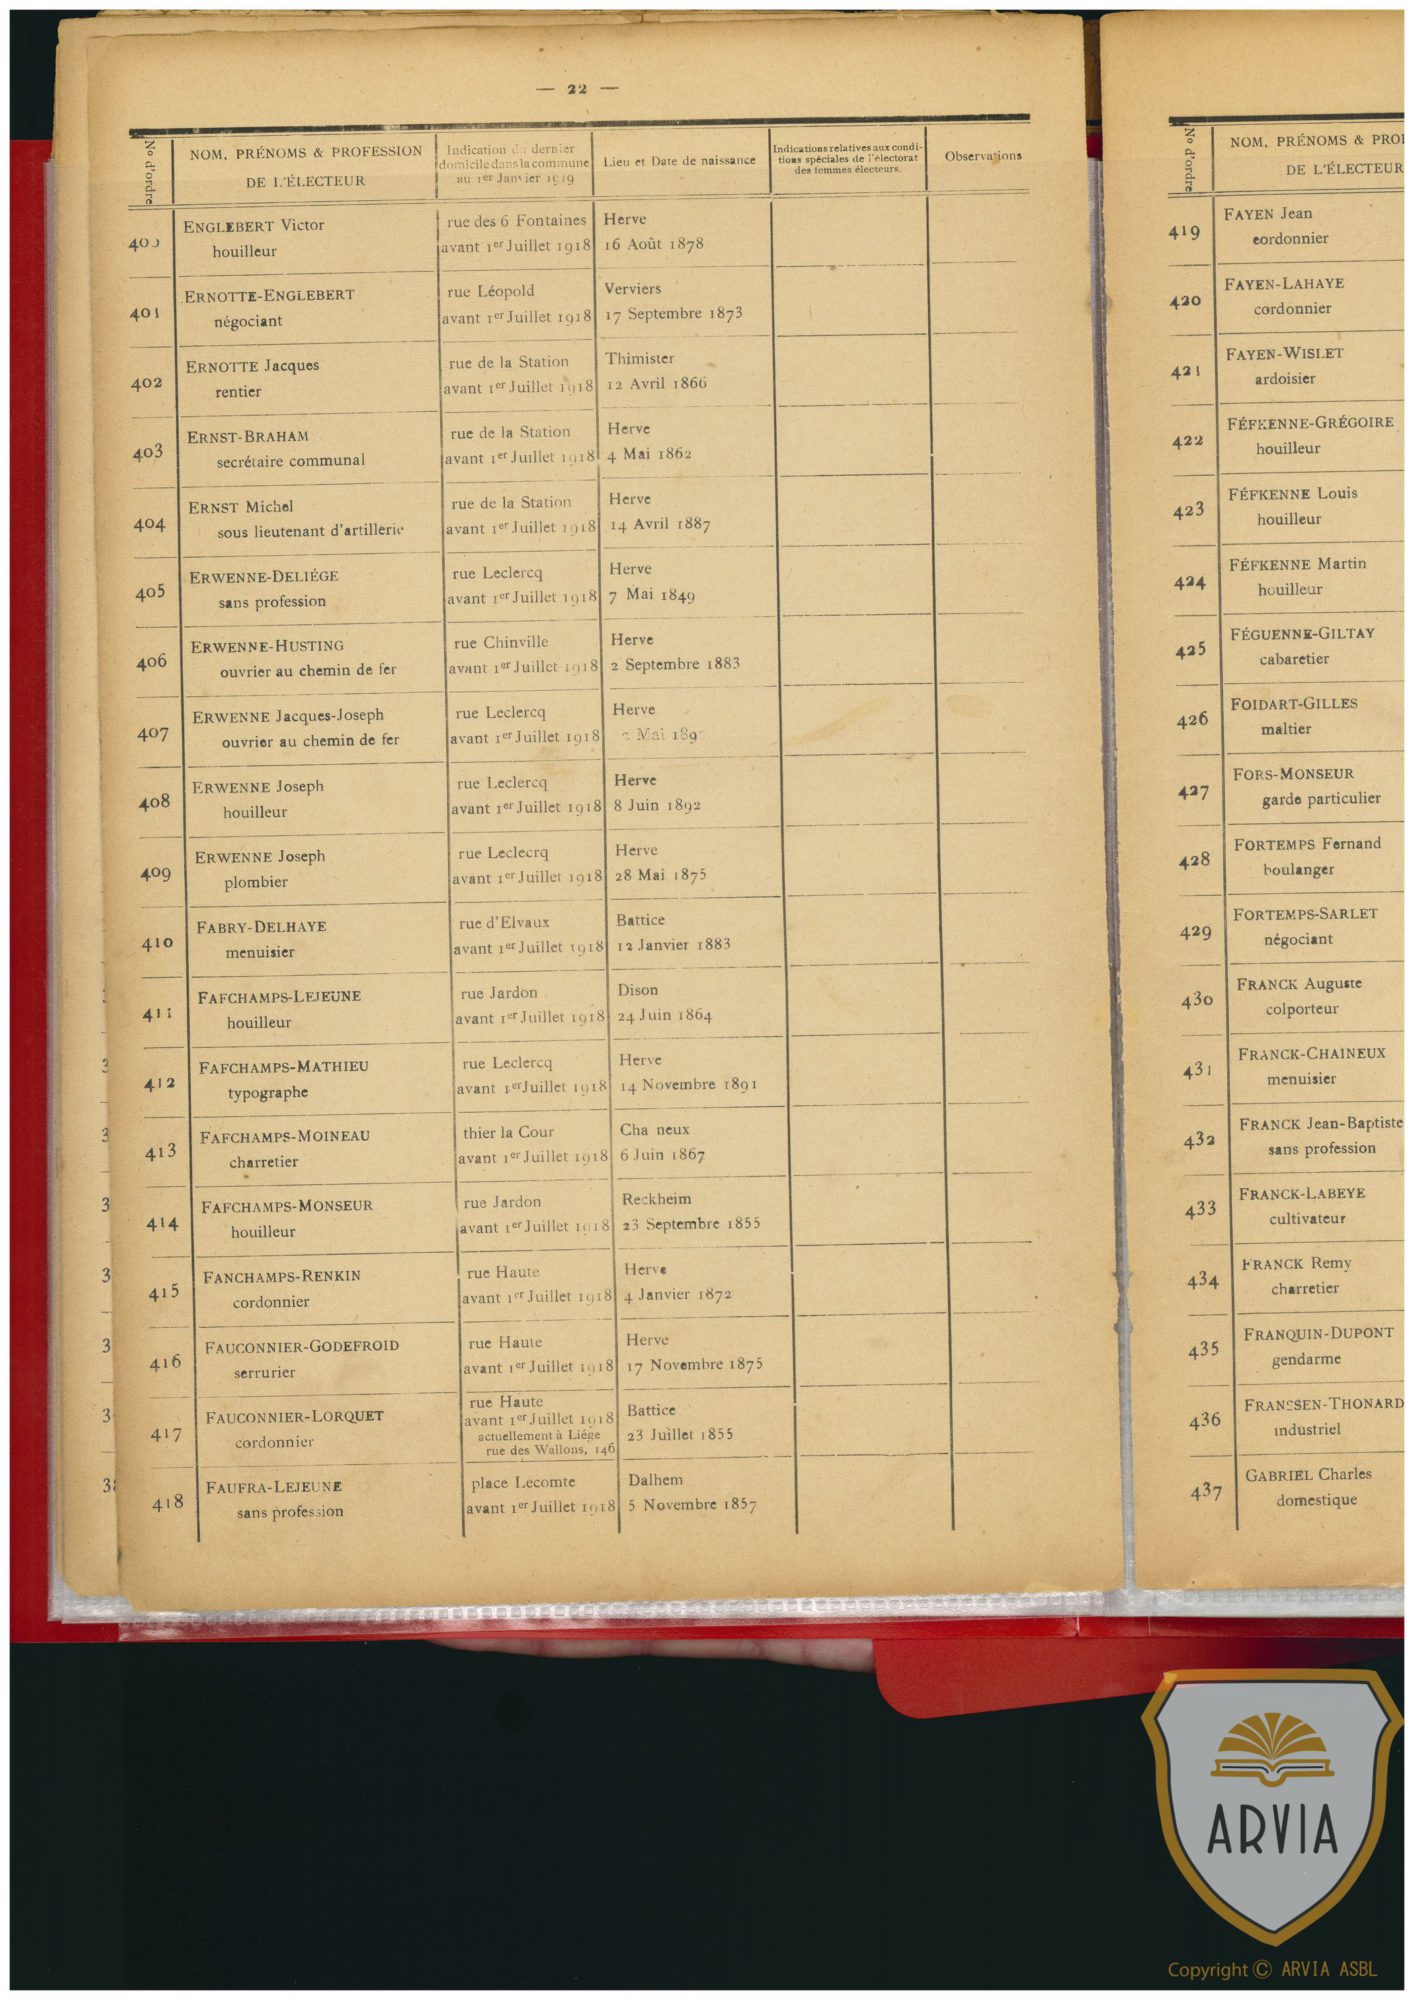 — 22 —
No d'ordre
NOM, PRÉNOMS & PROFESSION
DE L'ÉLECTEUR
Indication du dernier
domicile dans la commune
au 1er Janvier 1919
Lieu et Date de naissance
Indications relatives aux condi-
tions spéciales de l'électorat
des femmes électeurs.
Observations
ENGLEBERT Victor rue des 6 Fontaines Herve
houilleur avant 1er Juillet 1918 16 Août 1878
401 ERNOTTE-ENGLEBERT rue Léopold Verviers
négociant avant 1er Juillet 1918 17 Septembre 1873
402 ERNOTTE Jacques rue de la Station Thimister
rentier avant 1er Juillet 1918 12 Avril 1866
403 ERNST-BRAHAM rue de la Station Herve
secrétaire communal avant 1er Juillet 1918 4 Mai 1862
404 ERNST Michel rue de la Station Herve
sous lieutenant d'artillerie avant 1er Juillet 1918 14 Avril 1887
405 ERWENNE-DELIÉGE rue Leclercq Herve
sans profession avant 1er Juillet 1918 7 Mai 1849
406 ERWENNE-HUSTING rue Chinville Herve
ouvrier au chemin de fer avant 1er Juillet 1918 2 Septembre 1883
407 ERWENNE Jacques-Joseph rue Leclercq Herve
ouvrier au chemin de fer avant 1er Juillet 1918 Mai
408 ERWENNE Joseph rue Leclercq Herve
houilleur avant 1er Juillet 1918 8 Juin 1892
409 ERWENNE Joseph rue Leclecrq Herve
plombier avant 1er Juillet 1918 28 Mai 1875
410 FABRY-DELHAYE rue d'Elvaux Battice
menuisier avant 1er Juillet 1918 12 Janvier 1883
411 FAFCHAMPS-LEJEUNE rue Jardon Dison
houilleur avant 1er Juillet 1918 24 Juin 1864
412 FAFCHAMPS-MATHIEU rue Leclercq Herve
typographe avant 1er Juillet 1918 14 Novembre 1891
413 FAFCHAMPS-MOINEAU thier la Cour Cha neux
charretier avant 1er Juillet 1918 6 Juin 1867
414 FAFCHAMPS-MONSEUR rue Jardon Reckheim
houilleur avant 1er Juillet 1918 23 Septembre 1855
415 FANCHAMPS-RENKIN rue Haute Herve
cordonnier avant 1er Juillet 1918 4 Janvier 1872
416 FAUCONNIER-GODEFROID rue Haute Herve
serrurier avant 1er Juillet 1918 17 Novembre 1875
417 FAUCONNIER-LORQUET rue Haute Battice
cordonnier avant 1er Juillet 1918 23 Juillet 1855
actuellement à Liége
rue des Wallons, 146
418 FAUFRA-LEJEUNE place Lecomte Dalhem
sans profession avant 1er Juillet 1918 5 Novembre 1857
No d'ordre
NOM, PRÉNOMS & PRO
DE L'ÉLECTEUR
419 FAYEN Jean
cordonnier
420 FAYEN-LAHAYE
cordonnier
421 FAYEN-WISLET
ardoisier
422 FÉFKENNE-GRÉGOIRE
houilleur
423 FÉFKENNE Louis
houilleur
424 FÉFKENNE Martin
houilleur
425 FÉGUENNE-GILTAY
cabaretier
426 FOIDART-GILLES
maltier
427 FORS-MONSEUR
garde particulier
428 FORTEMPS Fernand
boulanger
429 FORTEMPS-SARLET
négociant
430 FRANCK Auguste
colporteur
431 FRANCK-CHAINEUX
menuisier
432 FRANCK Jean-Baptiste
sans profession
433 FRANCK-LABEYE
cultivateur
434 FRANCK Remy
charretier
435 FRANQUIN-DUPONT
gendarme
436 FRANSSEN-THONARD
industriel
437 GABRIEL Charles
domestique
ARVIA
Copyright © ARVIA ASBL